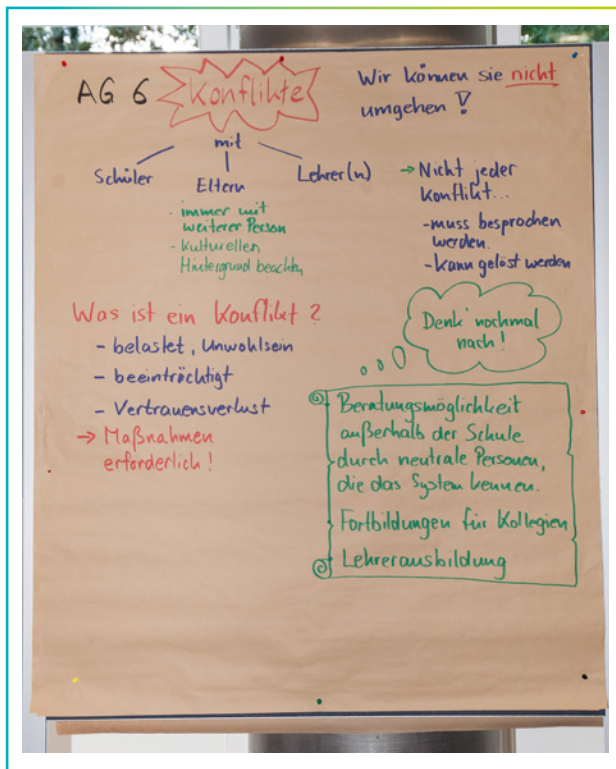 AG 6 Konflikte
mit
Schüler
Eltern
Lehrer(n)
- immer mit
weiterer Person
- Kulturellen
Hintergrund beachten
Wir können sie nicht
umgehen!
→ Nicht jeder
Konflikt...
- muss besprochen
werden.
- kann gelöst werden
Was ist ein Konflikt?
- belastet, Unwohlsein
- beeinträchtigt
- Vertrauensverlust
→ Maßnahmen
erforderlich!
Denk' nochmal
nach!
Beratungsmöglichkeit
außerhalb der Schule
durch neutrale Personen,
die das System kennen.
Fortbildungen für Kollegien
Lehrerausbildung